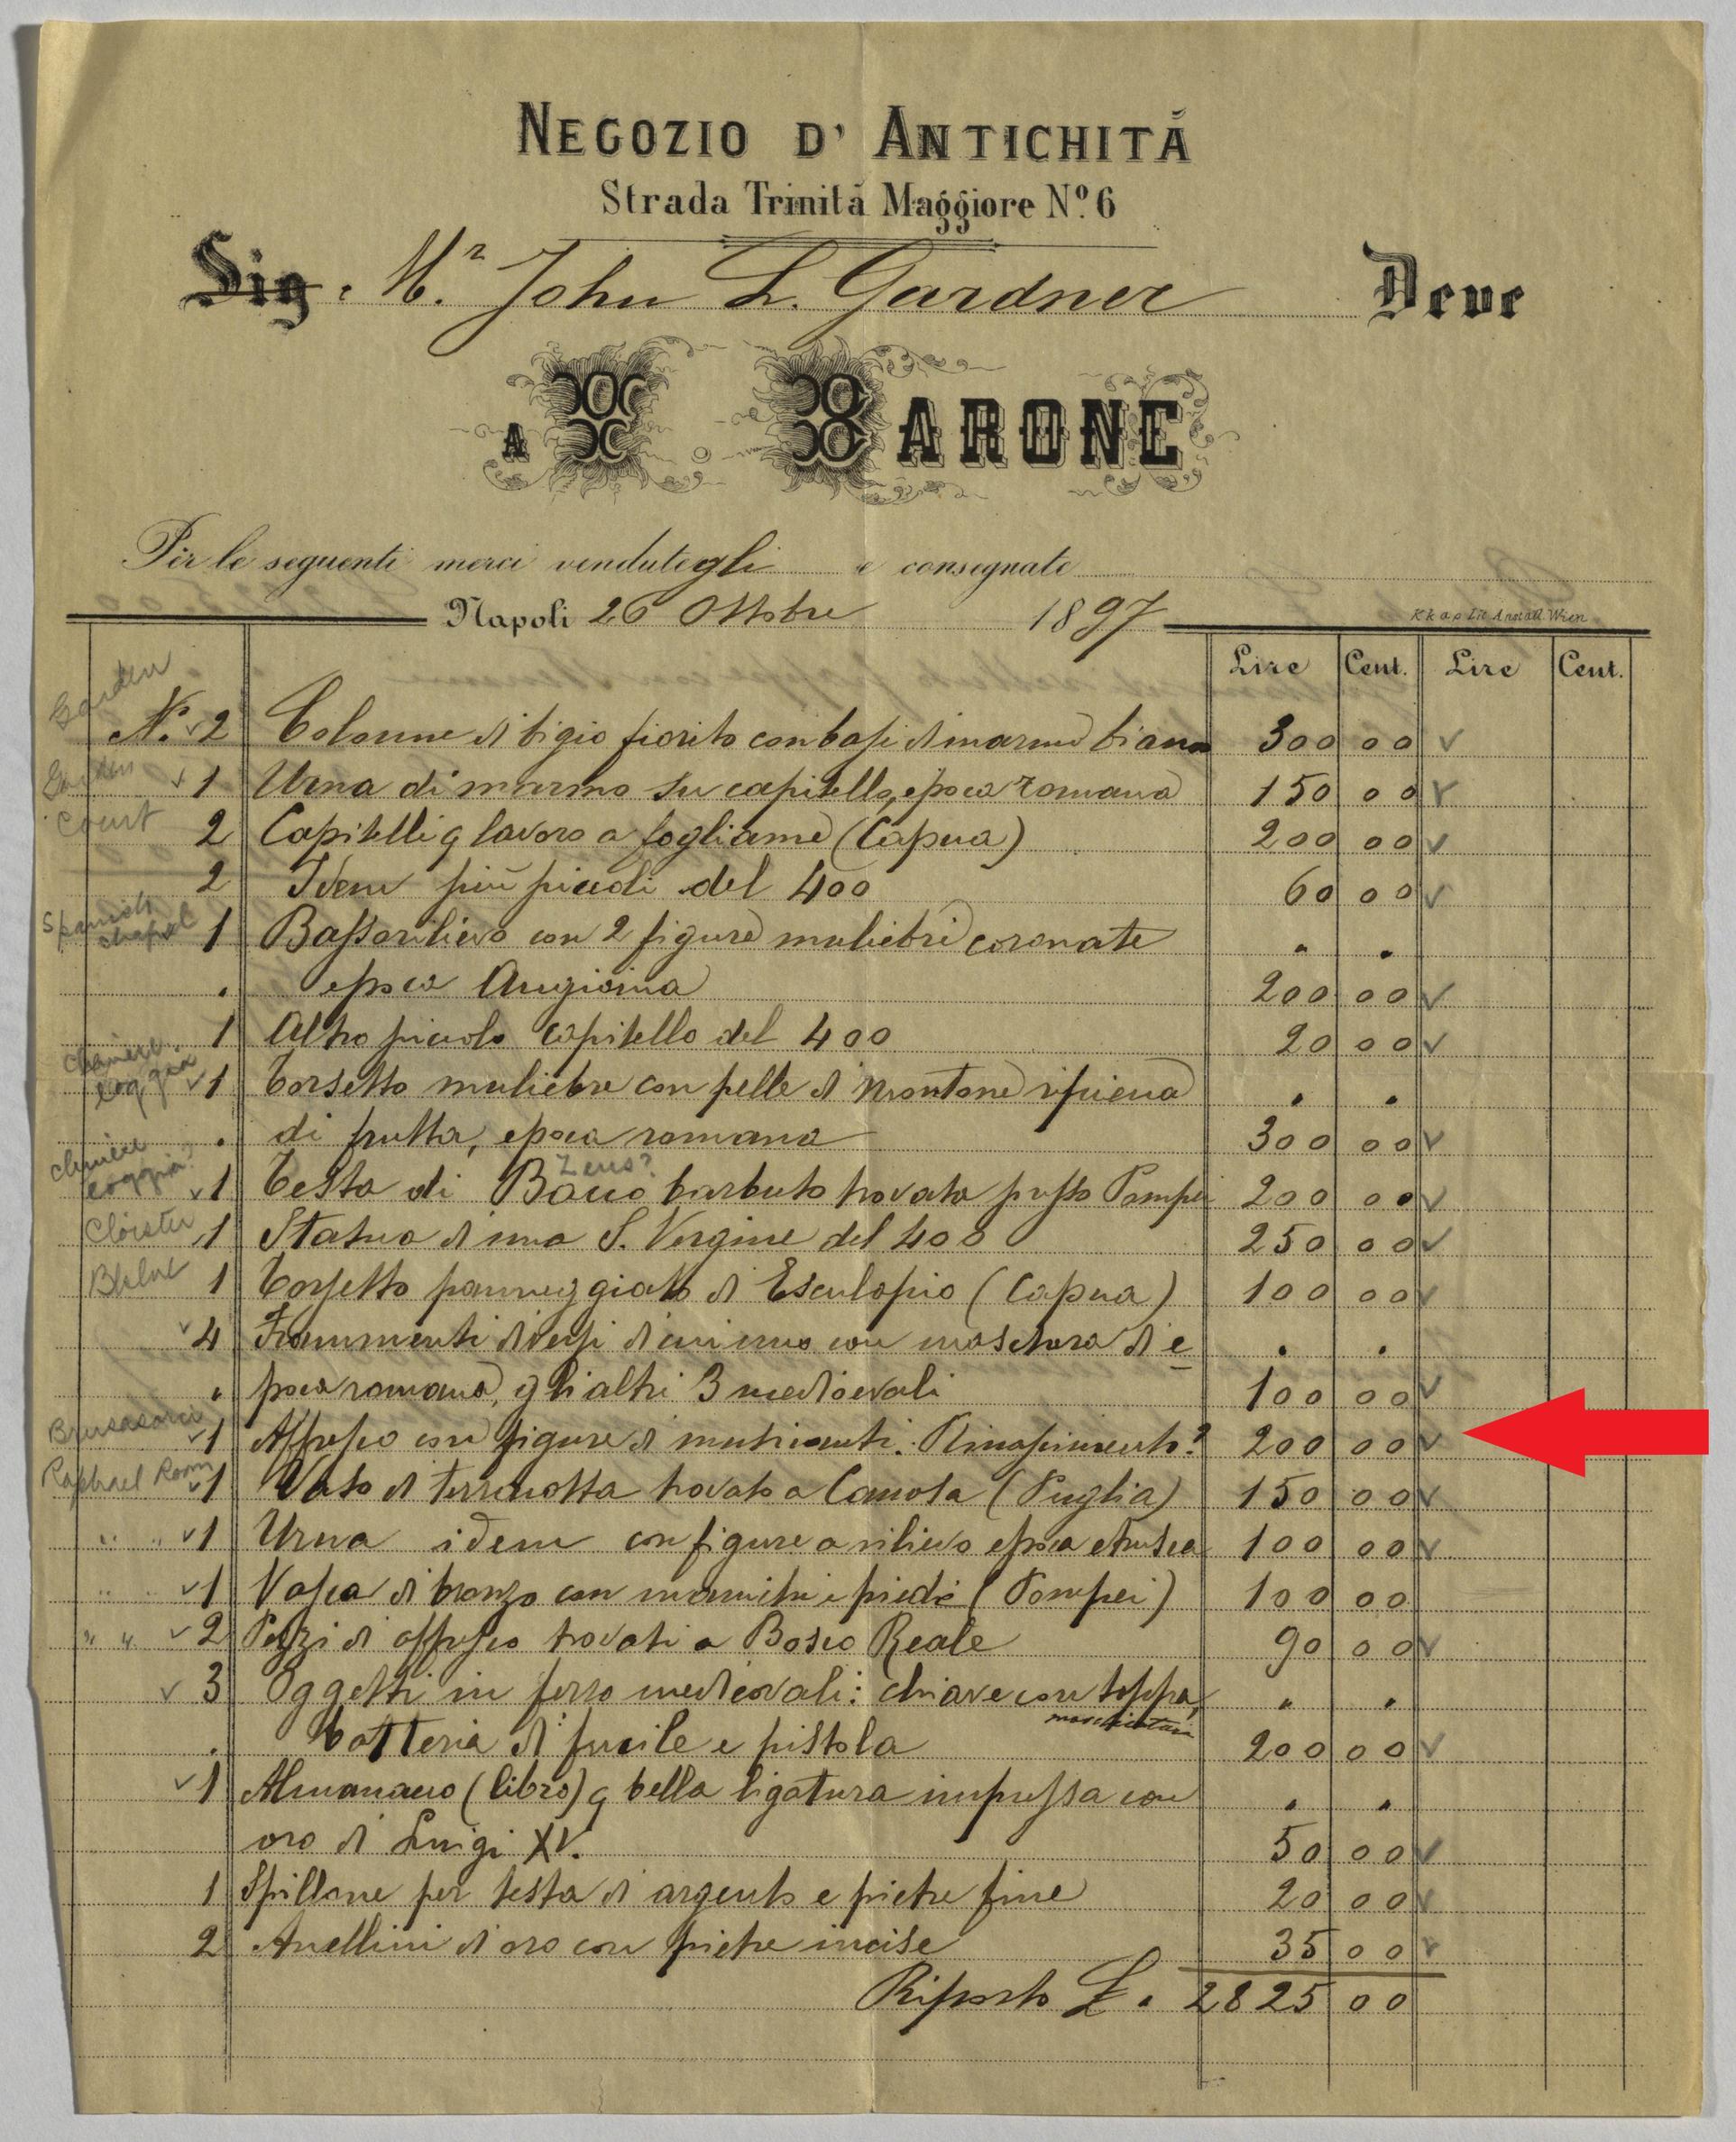 NEGOZIO D' ANTICHITÀ
Strada Trinità Maggiore Nº. 6
Sig. Mr John L. Gardner Deve
A X. BARONE
Per le seguenti merci vendutegli e consegnate
Napoli 26 Ottobre 1897
Lire Cent. Lire Cent.
Garden
N. 2 Colonne di bigio fiorito con basi di marmo bianco 300 00
Garden 1 Urna di marmo su capitello, epoca romana 150 00
Court 2 Capitelli g lavoro a fogliame (Capua) 200 00
2 Idem più piccoli del 400 60 00
Spanish chapel 1 Bassorilievo con 2 figure muliebri coronate " "
epoca Angioina 200 00
1 Altro piccolo capitello del 400 20 00
Chinese loggia 1 Torsetto muliebre con pelle di montone ripiena " "
di frutta, epoca romana 300 00
Zeus?
Chinese loggia? 1 Testa di Bacco barbuto trovata presso Pompei 200 00
Cloister 1 Statua di una S. Vergine del 400 250 00
1 Torsetto panneggiato di Esculapio (Capua) 100 00
4 Frammenti diversi di cui uno con maschera di e " "
poca romana, gli altri 3 medioevali 100 00
Brusasorci 1 Affresco con figure di Rinascimento? 200 00
Raphael Room 1 Vaso di terracotta trovato a Canosa (Puglia) 150 00
" " 1 Urna idem con figure a rilievo epoca etrusca 100 00
" " 1 Vasca di bronzo con manichi e piedi (Pompei) 100 00
" " 2 Pezzi di affresco trovati a Bosco Reale 90 00
3 Oggetti in ferro medioevali: chiave con toppa, " "
batteria di fucile e pistola 200 00
1 Almanacco (libro) g bella ligatura impressa con " "
oro di Luigi XV. 50 00
1 Spillone per testa di argento e pietre fine 20 00
2 Anellini di oro con pietre incise 35 00
Riporto £. 2825 00